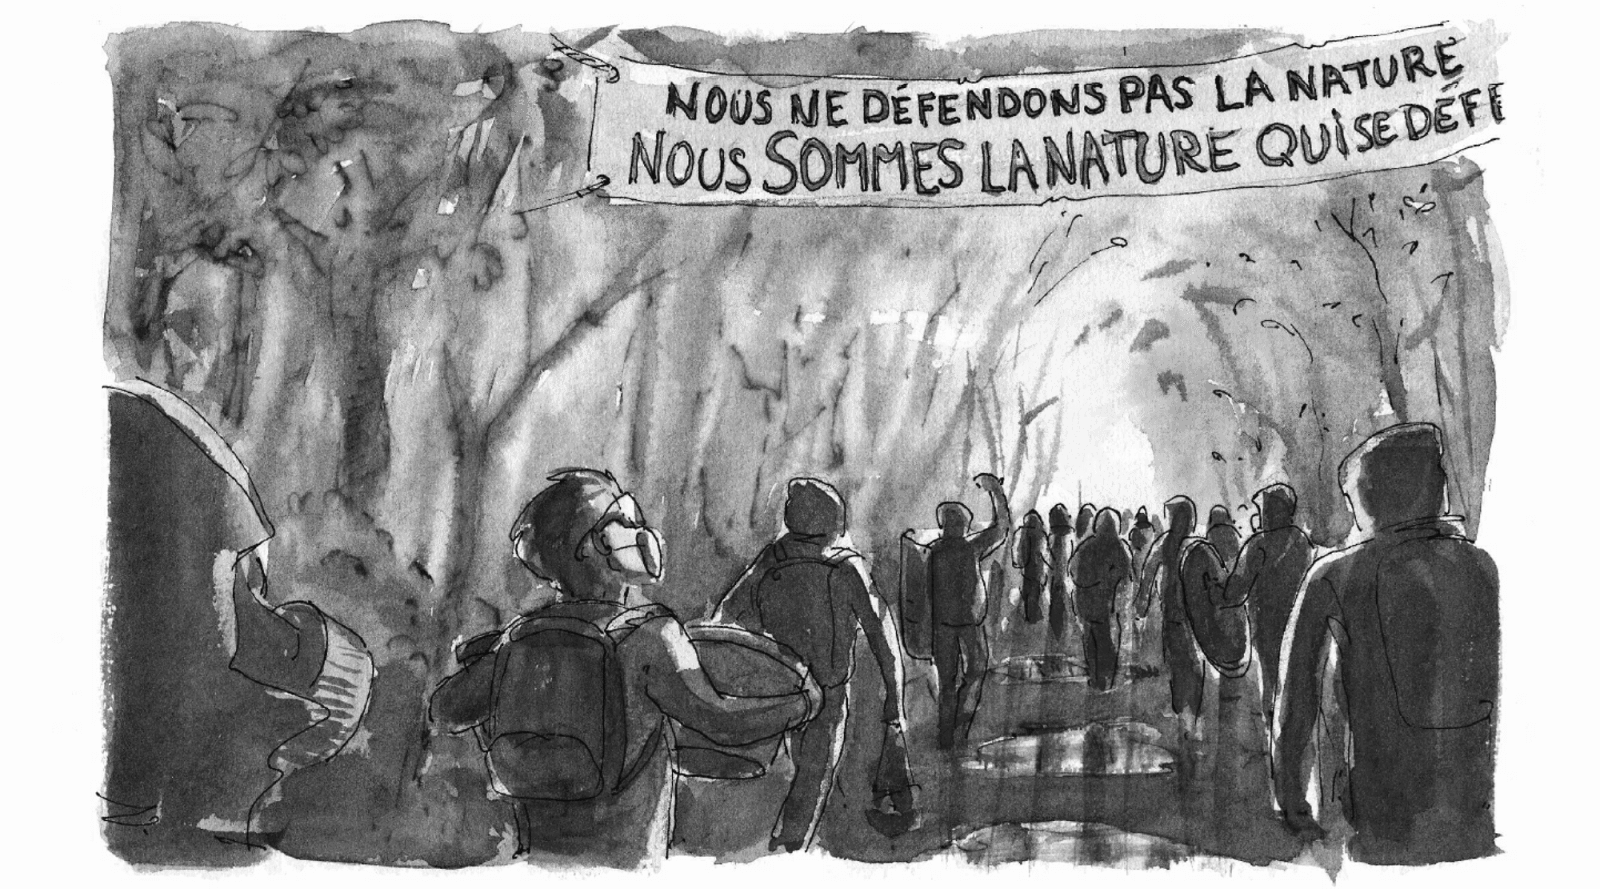 NOUS NE DÉFENDONS PAS LA NATURE
NOUS SOMMES LA NATURE QUI SE DÉFE